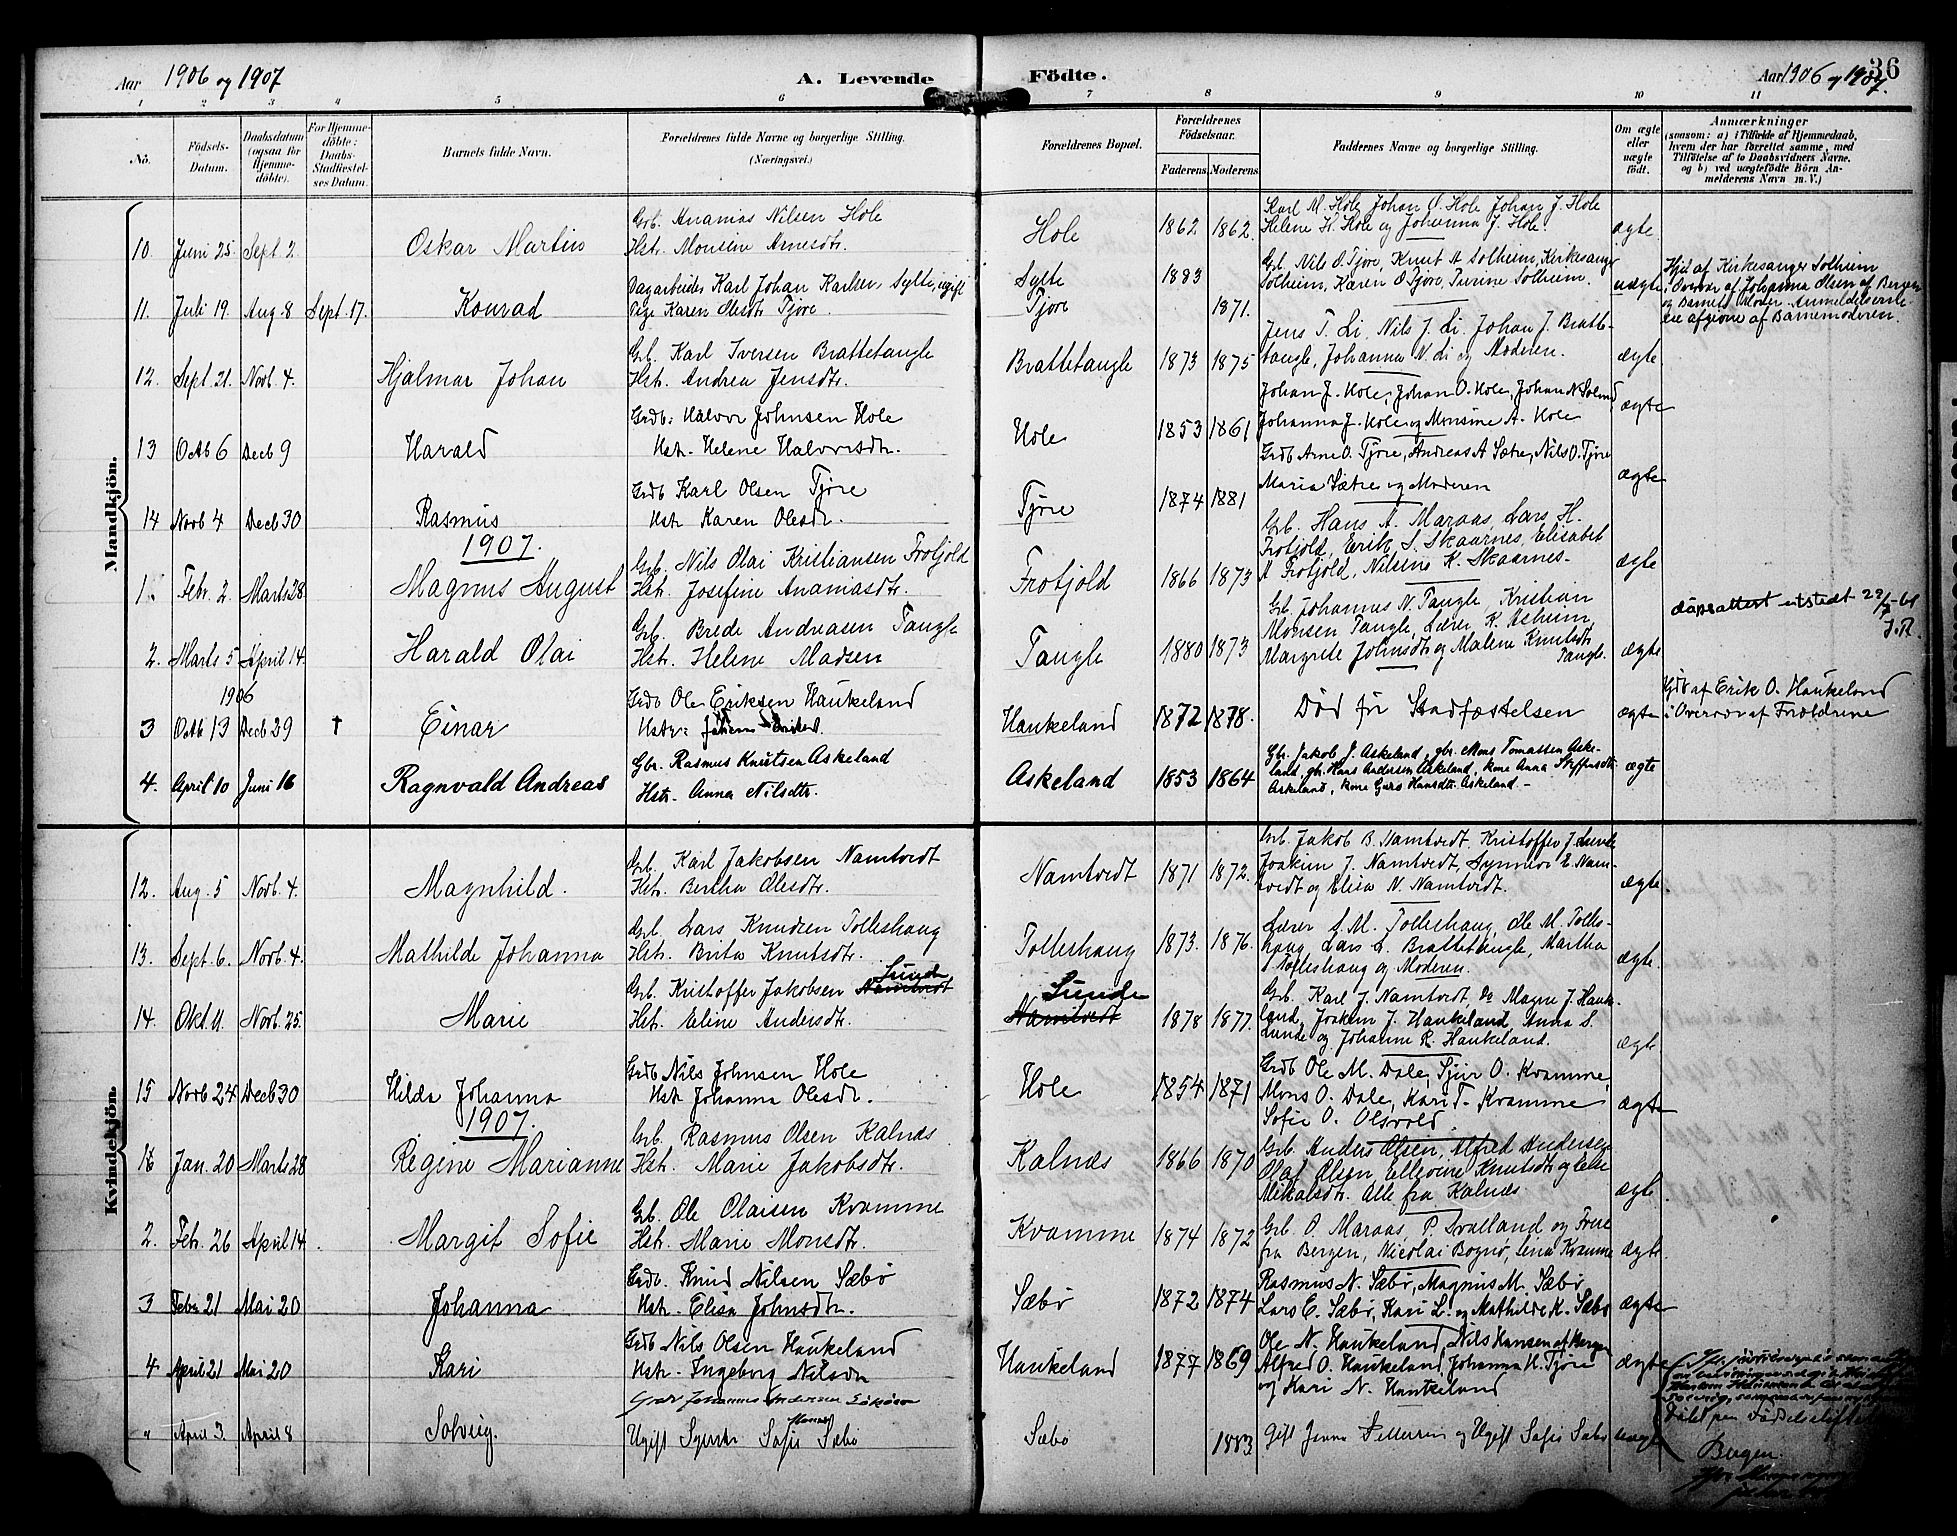 Aar 1906 og 1907 A. Levende Födte. Aar 1906 og 1907. 36
1 2 3 4 5 6 7 8 9 10 11
No. Födsels-Datum. Daabsdatum (ogsaa for Hjemmedöbte). For Hjemmedöbte: Daabs-Stadfæstelses Datum. Barnets fulde Navn. Forældrenes fulde Navne og borgerlige Stilling. (Næringsvei.) Forældrenes Bopæl. Forældrenes Födselsaar. Faderens. Moderens. Faddernes Navne og borgerlige Stilling. Om ægte eller uægte födt. Anmærkninger
(saasom: a) i Tilfælde af Hjemmedaab, hvem der har forrettet samme, med Tilföielse af to Daabsvidners Navne, og b) ved uægtefödte Börn Anmelderens Navn m. V.)
Mandkjön.
10. Juni 25. Sept. 2. Oskar Martin
Grb. Ananias Nilsen Hole
Hst. Monsine Arnesdtr.
Hole 1862 1862.
Karl M. Hole, Johan O. Hole, Johan J. Hole
Helene H. Hole og Johanna J. Hole.
ægte
11. Juli 19. Aug. 8 Sept. 17. Konrad
Dagarbeider Karl Johan Karlsen, Sylte, ugift
Pige Karen Olesdtr Tjore.
Sylte
Tjore
1883 1871.
Gb. Nils O. Tjore, Knut A Solheim, Kirkesanger
Solheim, Karen O Tjore, Turine Solheim.
uægte
Hjd. af Kirkesanger Solheim
i Overvær af Johanna Olsen af Bergen
og Barnets Moder. Anmeldelsen
afgiven af Barnemoderen.
12. Sept. 21. Novb. 4. Hjalmar Johan
Gb. Karl Iversen Brattetangle
Hst. Andrea Jensdtr.
Brattetangle 1873 1875
Jens T. Li, Nils J. Li, Johan J. Bratte-
tangle, Johanna N. Li og Moderen.
ægte
13 Octb 6 Decb 9 Harald
Grdb: Halvor Johnsen Hole
Hstr. Helene Halvorsdtr.
Hole 1853 1861
Johan J. Hole, Johan O. Hole, Johan N.
Johanna J. Hole og Monsine A. Hole
ægte
14 Novb 4 Decb 30 Rasmus
Grdb Karl Olsen Tjøre
Hstr Karen Olesdtr.
Tjøre 1874 1881
Grdb Arne O. Tjøre, Andreas A Sætre, Nils O. Tjöre
Maria Sætre og Moderen
ægte
1907.
1. Febr. 2. Marts 28. Magnus August
Grb. Nils Olai Kristiansen Frotjold
Hst. Josefine Ananiasdtr.
Frotjold 1866 1873
Grb. Hans A. Maraas, Lars H.
Frotjold, Erik S. Skaarnes, Elisabet
A Frotjold, Nilsine K. Skaarnes.
ægte
2. Marts 5 April 14. Harald Olai
Grb. Brede Andreasen Tangle
Hst. Helene Madsen
Tangle 1880 1873
Grb. Johannes N. Tangle, Kristian
Monsen Tangle, Lærer K. Asheim,
Margrete Johnsdtr og Malene Knutsdtr
Tangle.
ægte
dåpsattest utstedt
J.R.
1906
3 Octb 13 Decb 29 † Einar
Grdb Ole Eriksen Haukeland
Hstr:
Haukeland 1872 1878.
Död för Stadfæstelsen
ægte
Hjdb af Erik O. Haukeland
i Overvær af Forældrene
4. April 10 Juni 16 Ragnvald Andreas
Gbr. Rasmus Knutsen Askeland
Hstr. Anna Nilsdtr.
Askeland 1853 1864
Gbr. Jakob J. Askeland, gbr. Mons Tomassen Aske-
land, gbr. Hans Andersen Askeland, kone Anna Steffensdtr
Askeland, kone Guro Hansdtr. Askeland. -
ægte
Kvindekjön.
12. Aug. 5 Novb. 4. Magnhild.
Grb. Karl Jakobsen Namtvedt
Hst. Bertha Olesdtr.
Namtvedt 1871 1872.
Grb. Jakob B. Namtvedt, Kristoffer J. Lunde
Joakim J. Namtvedt, Synneva E. Nam-
tvedt og Elisa N. Namtvedt.
ægte.
13. Sept. 6. Novb. 4. Mathilde Johanna
Grb. Lars Knudsen Tolleshaug
Hst. Brita Knutsdtr.
Tolleshaug 1873. 1876.
Lærer S. M. Tolleshaug, Ole M. Tolles-
haug, Lars L. Brattetangle, Martha
Tolleshaug og Moderen.
ægte.
14. Okt. 11. Novb. 25. Marie
Lunde
Grb. Kristoffer Jakobsen Namtvedt
Hst. Eline Andersdtr.
Lunde
Namtvedt
1878 1877.
Grb. Karl J. Namtvedt, Do Magne J. Hauke-
land, Joakim J. Haukeland, Anna S.
Lunde og Johanne R. Haukeland.
ægte
15 Novb 24 Decb 30 Hilda Johanna
Grdb Nils Johnsen Hole
Hstr Johanna Olesdtr.
Hole 1854 1871
Grdb Ole M. Dale, Sjur O. Kvamme,
Mons O. Dale, Kari T. Kvamme
Sofie O. Olsvold.
ægte
1907.
Jan. 20 Marts 28 Regine Marianne
Grb. Rasmus Olsen Kalnæs
Hst. Marie Jakobsdtr.
Kalnæs 1866 1870
Grb. Anders Olsen, Alfred Andersen
Olaf Olsen, Ellevine Knutsdtr og
Mikalsdtr. Alle fra Kalnæs
ægte
2. Febr. 26 April 14. Margit Sofie
Grb. Ole Olaisen Kvamme
Hst. Marie Monsdtr.
Kvamme 1874 1872
Grb. O. Maraas, P. Svalland og Frue
fra Bergen, Nicolai Bognø, Lina Kvamme
ægte.
3 Febr 21 Mai 20 Johanna
Grdb. Knud Nilsen Sæbø
Hstr. Elisa Johnsdtr.
Sæbø 1872 1874
Rasmus N. Sæbø, Magnus M. Sæbø
Lars E. Sæbø, Kari L. og Mathilde K. Sæbø
ægte
4 April 21 Mai 20 Kari
Grdb Nils Olsen Haukeland
Hstr. Ingeborg Nilsdtr
Haukeland 1877 1869
Ole N. Haukeland, Nils Hansen af Bergen
Alfred O. Haukeland, Johanna H. Tjöre
og Kari N. Haukeland
ægte
" April 3. April 8 Solveig.
Johannes Andersen
Ugift Sofie Sæbø
Sæbø 1883
Gift og Ugift Sofie Sæbø
uægte
Bergen